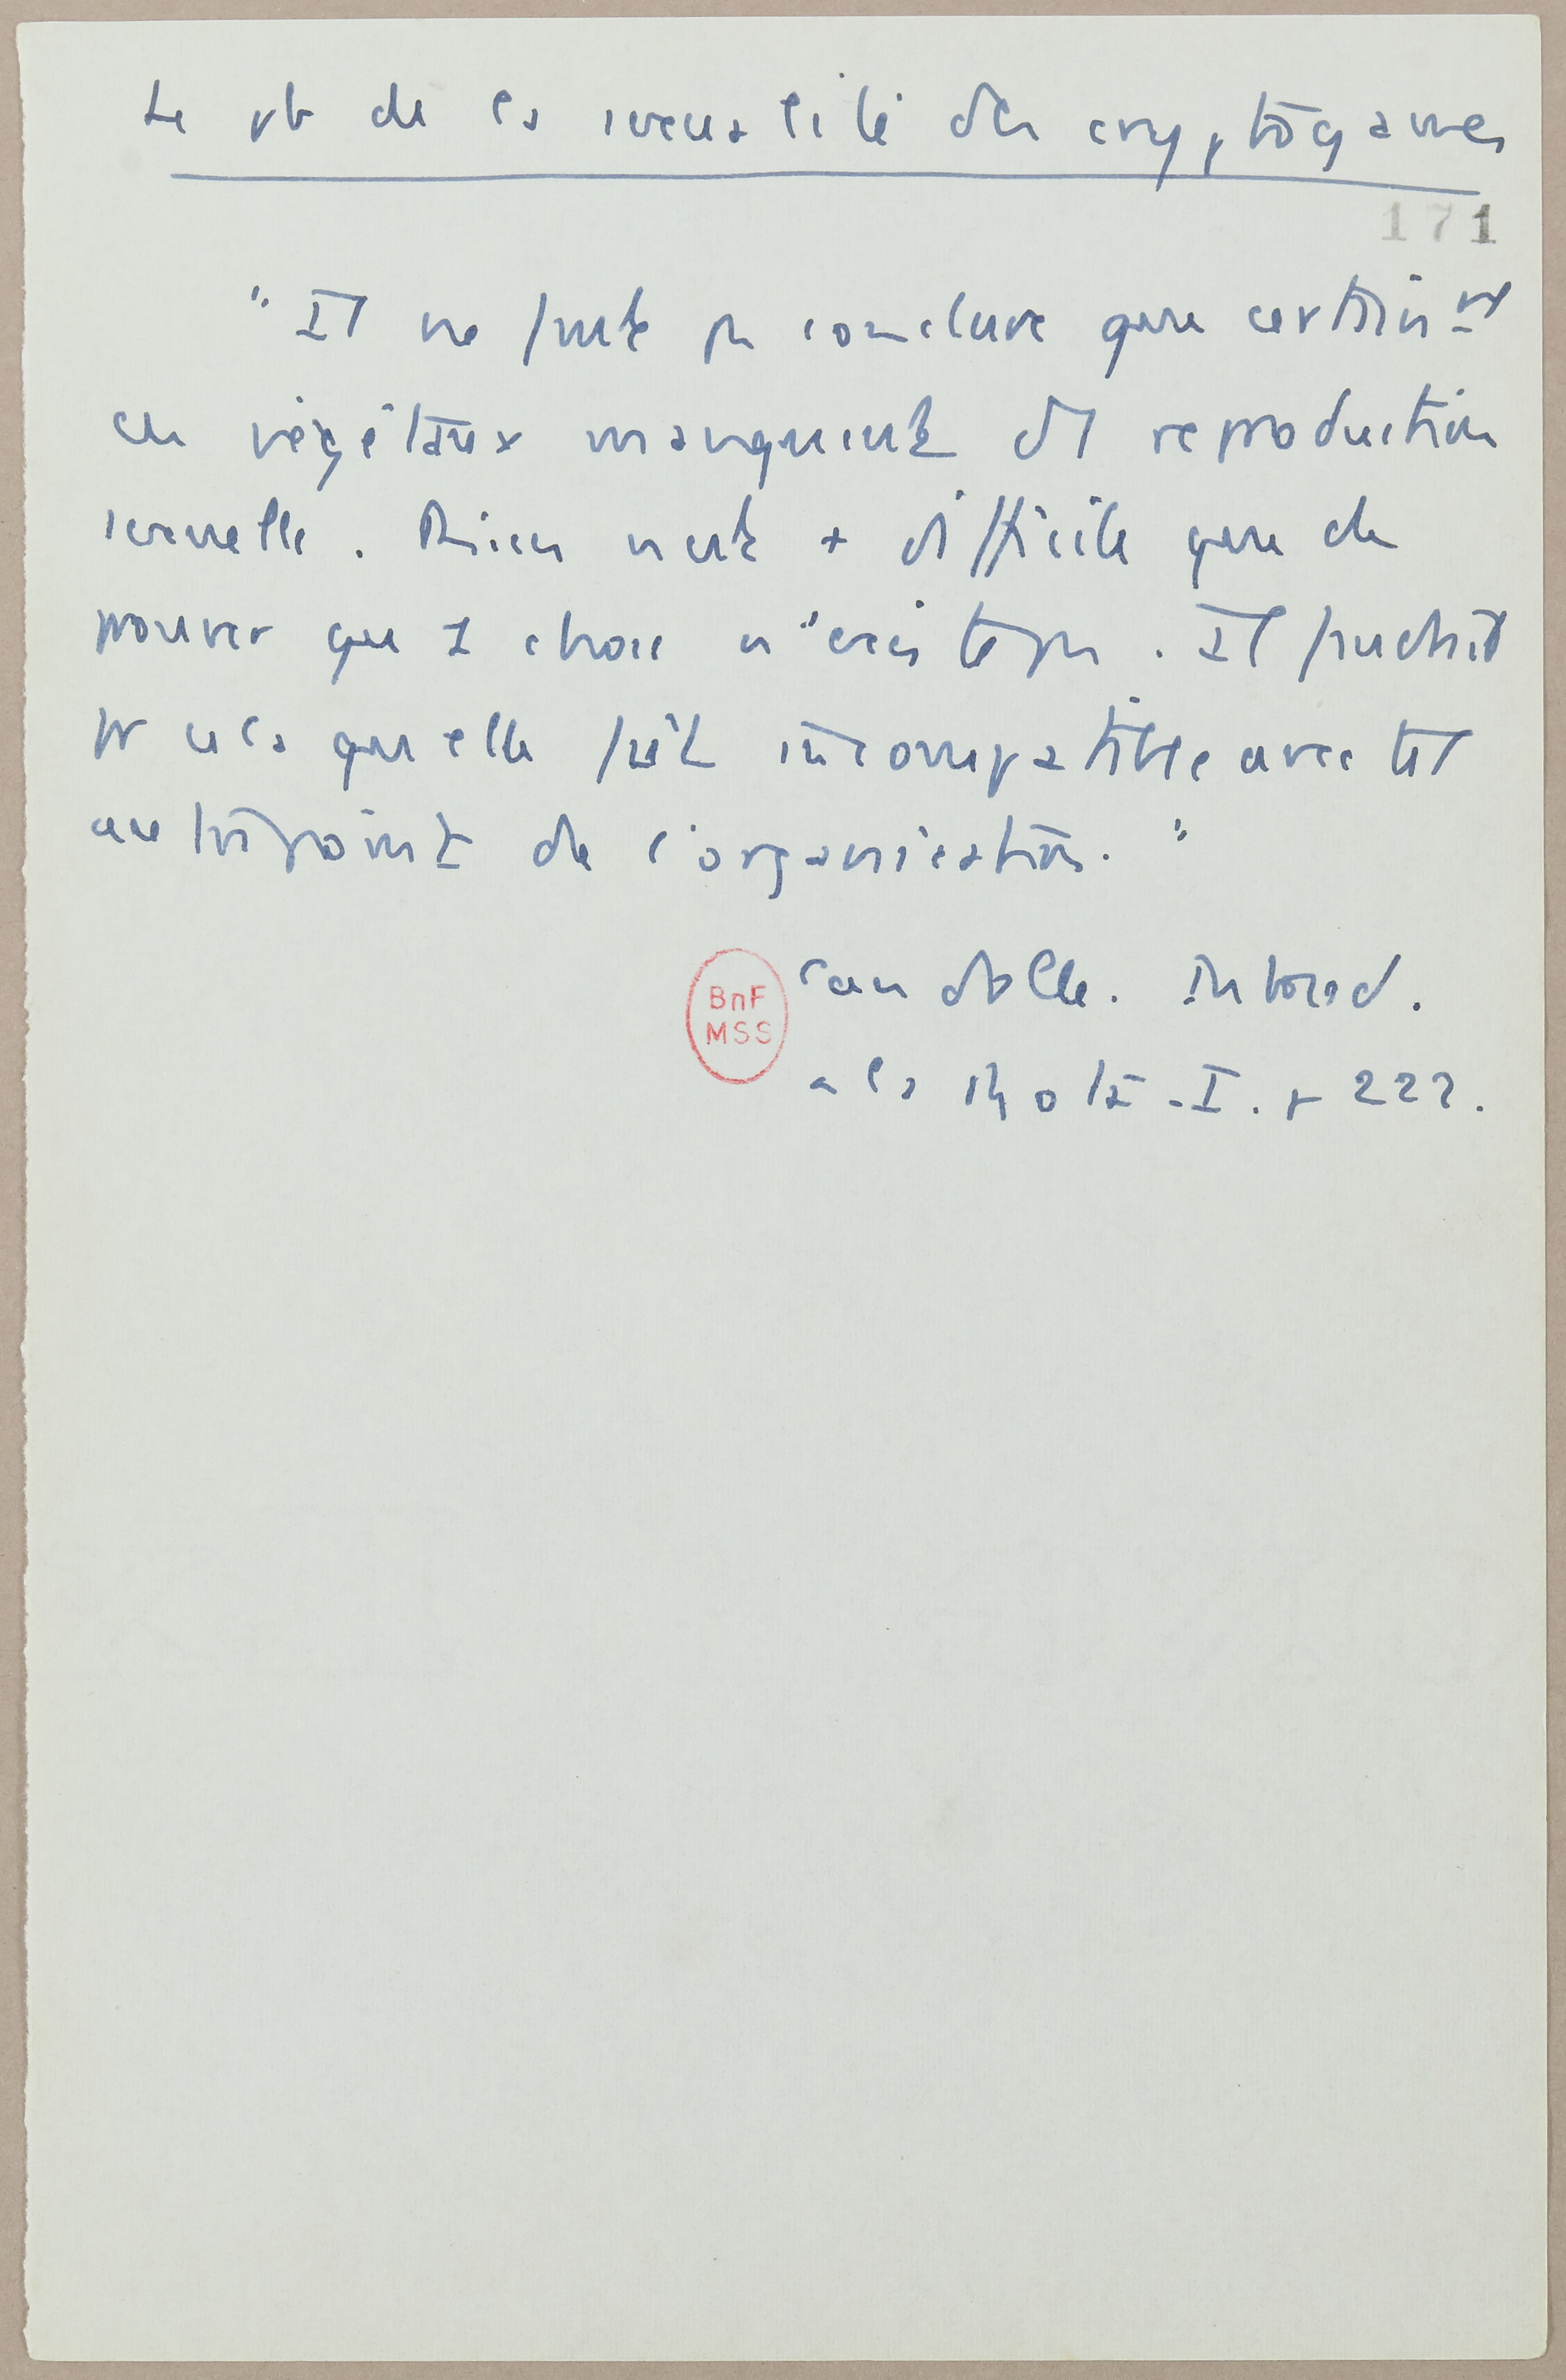 Le pb de la sexualité des cryptogames
171
"Il ne faut pas conclure que certains
ces végétaux manquent de reproduction
sexuelle. Rien n'est + difficile que de
prouver que 1 chose n'existe pas. Il faudrait
pr cela qu'elle fût incompatible avec tel
autre point de l'organisation."
Candolle. Introd.
BnF
MSS
à la Bota. I. p 222.